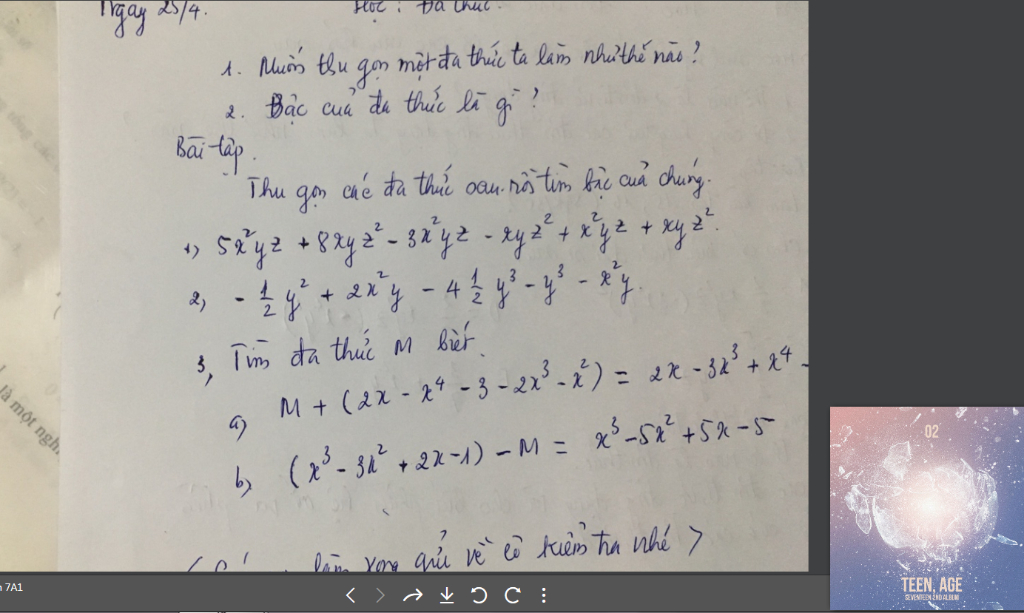 Ngày 25/4. Học: Đa thức.
1. Muốn thu gọn một đa thức ta làm như thế nào?
2. Bậc của đa thức là gì?
Bài tập.
Thu gọn các đa thức sau rồi tìm bậc của chúng.
1) 5x²yz + 8xyz² - 3x²yz - xyz² + x²yz + xyz².
2, - 1/2 y² + 2x²y - 4 1/2 y³ - y³ - x²y.
3, Tìm đa thức M biết.
a) M + (2x - x⁴ - 3 - 2x³ - x²) = 2x - 3x³ + x⁴ -
b) (x³ - 3x² + 2x - 1) - M = x³ - 5x² + 5x - 5
làm xong gửi về cô kiểm tra nhé >
là một
7A1
02
TEEN, AGE
SEVENTEEN 2ND ALBUM